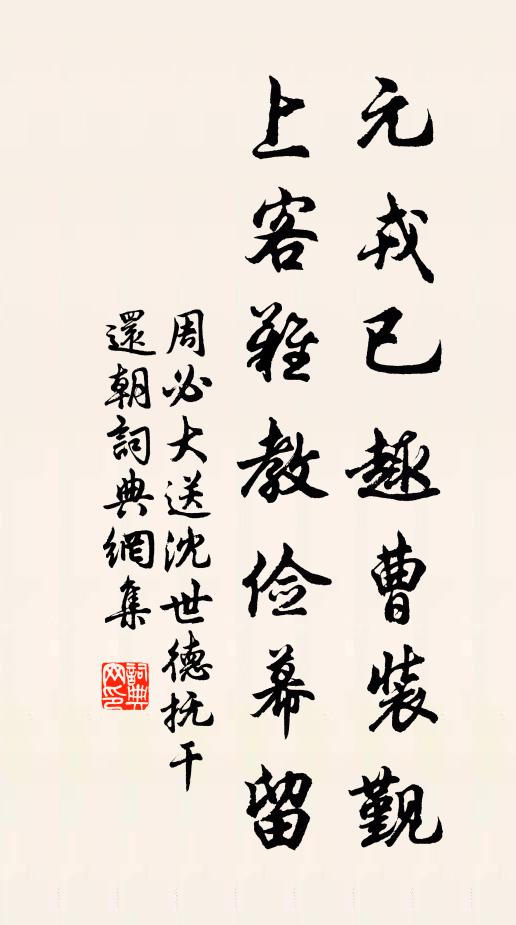 元戎已趣曹装觐
上客難教俭幕留
周必大送沈世德抚干
還朝詞典網集
詞典網印